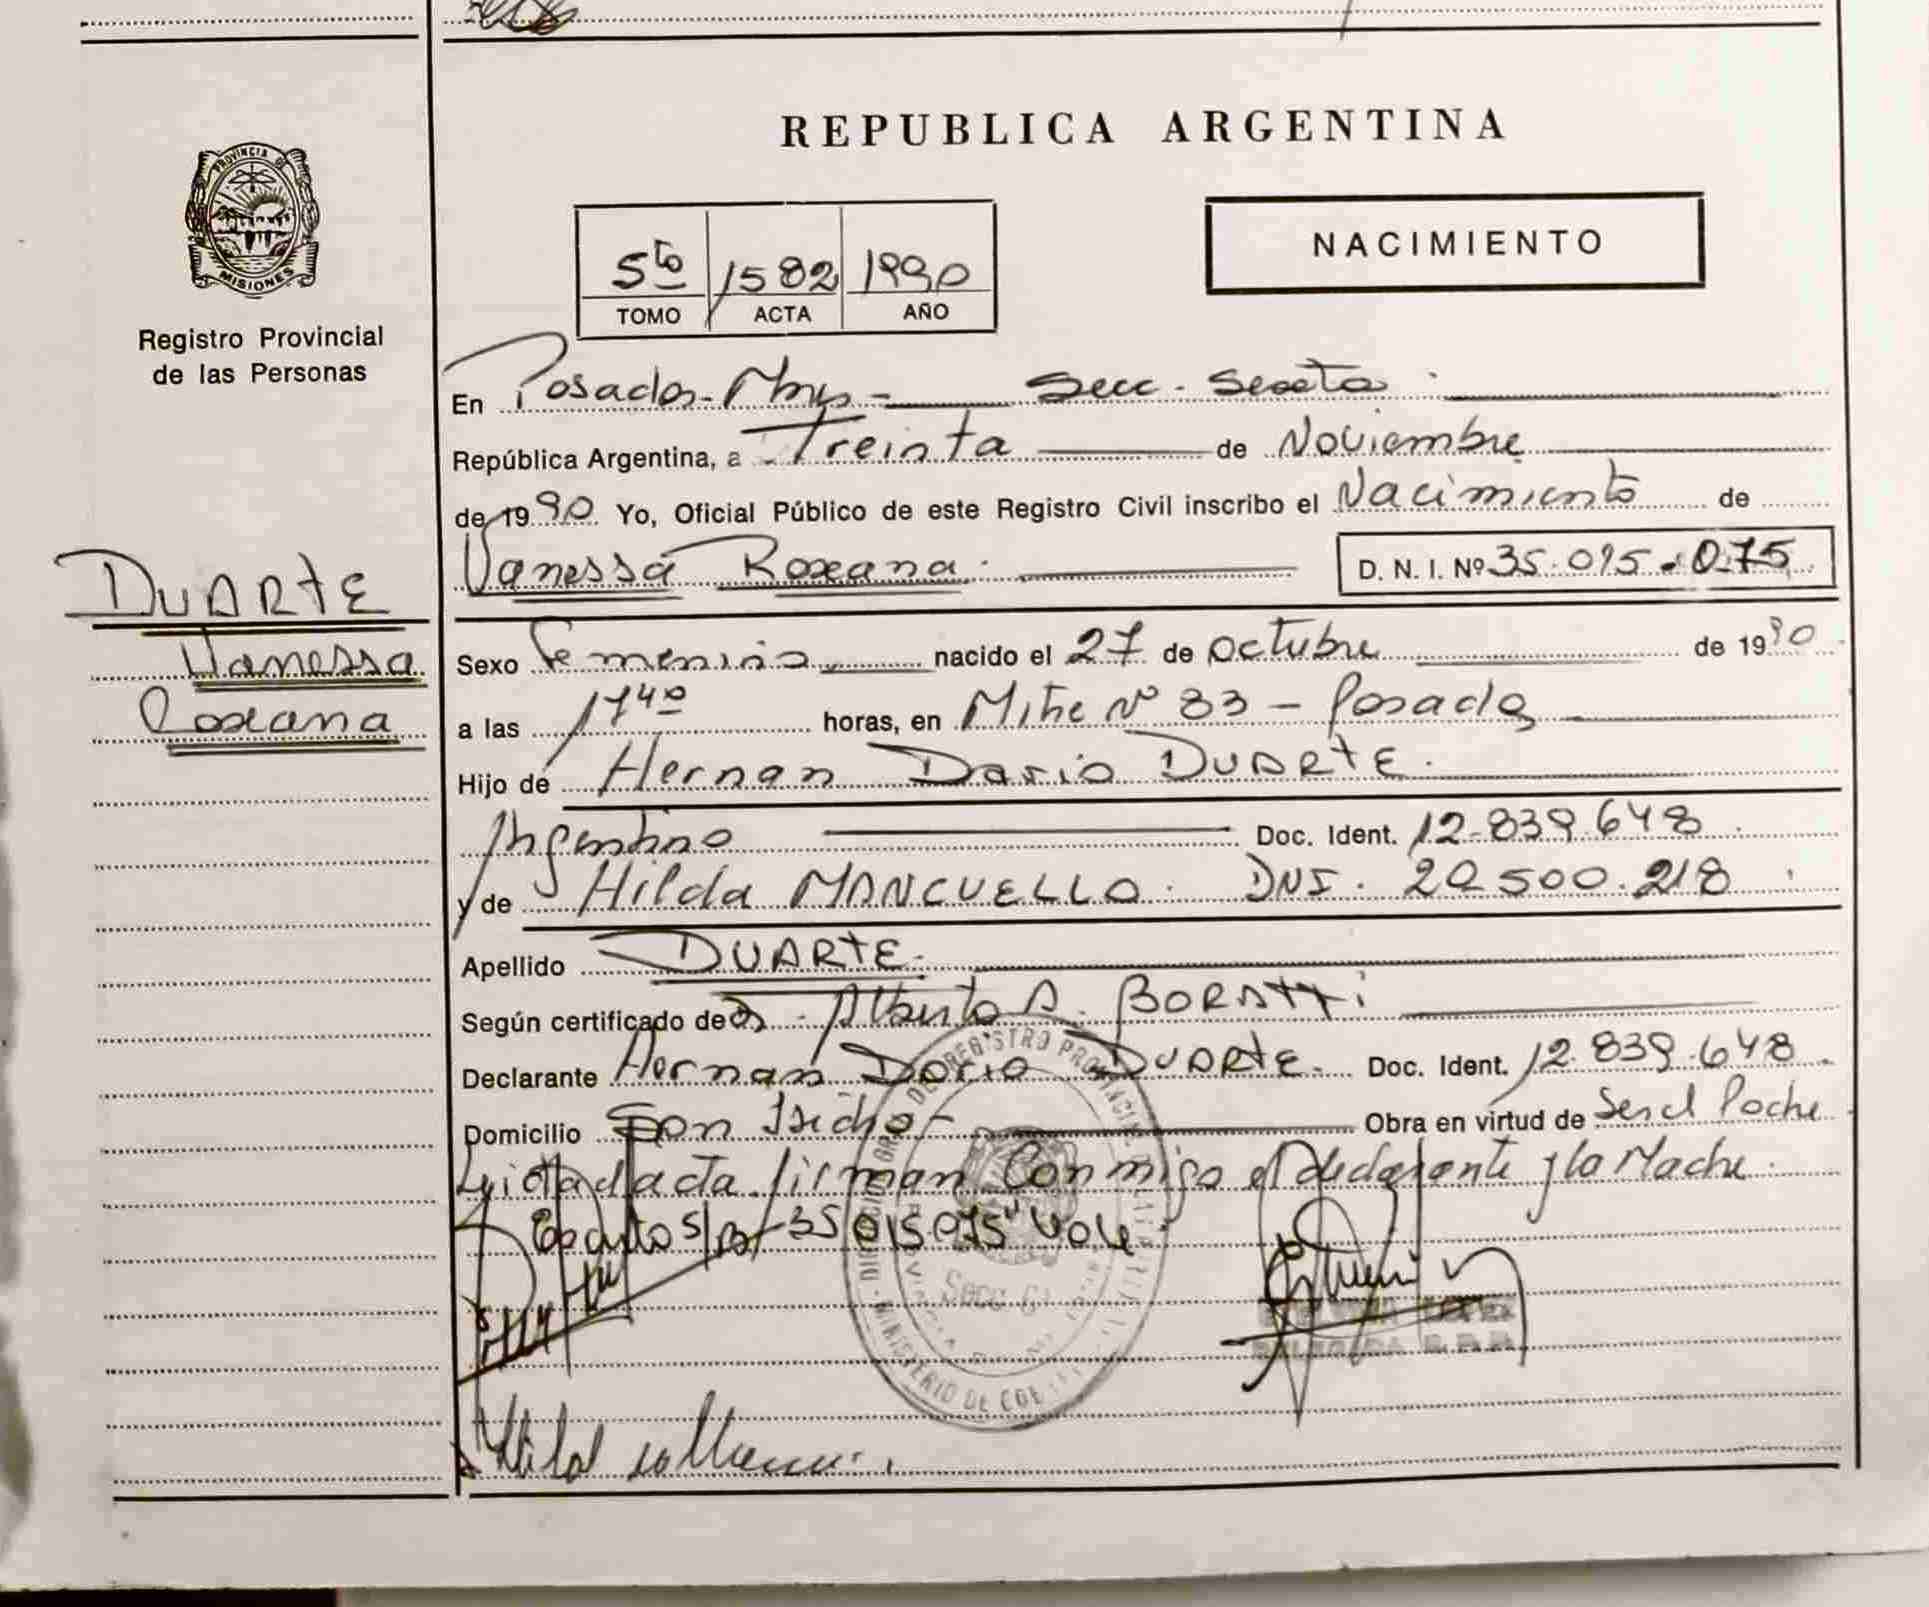 REPUBLICA ARGENTINA
PROVINCIA DE
MISIONES
Registro Provincial
de las Personas
5to 1582 1990
TOMO ACTA AÑO
NACIMIENTO
En Posadas - Mnes - Secc. Sexta
República Argentina, a Treinta de Noviembre
de 1990 Yo, Oficial Público de este Registro Civil inscribo el Nacimiento de
Vanessa Roxana D. N. I. Nº 35.015.075
DUARTE
Vanessa
Roxana
Sexo Femenino nacido el 27 de octubre de 1990
a las 1740 horas, en Mitre Nº 83 - Posadas
Hijo de Hernan Dario DUARTE.
Argentino Doc. Ident. 12.839.648
y de Hilda MANCUELLO. DNI. 20.500.218
Apellido DUARTE.
Según certificado de Dr. Alberto A. BORATTI
Declarante Hernan Dario DUARTE. Doc. Ident. 12.839.648
Domicilio San Isidro Obra en virtud de Ser el Padre
Leida el acta firman Conmigo el declarante y la Madre.
35015075 Vale
DEL REGISTRO PROVINCIAL
MINISTERIO DE
Secc 6